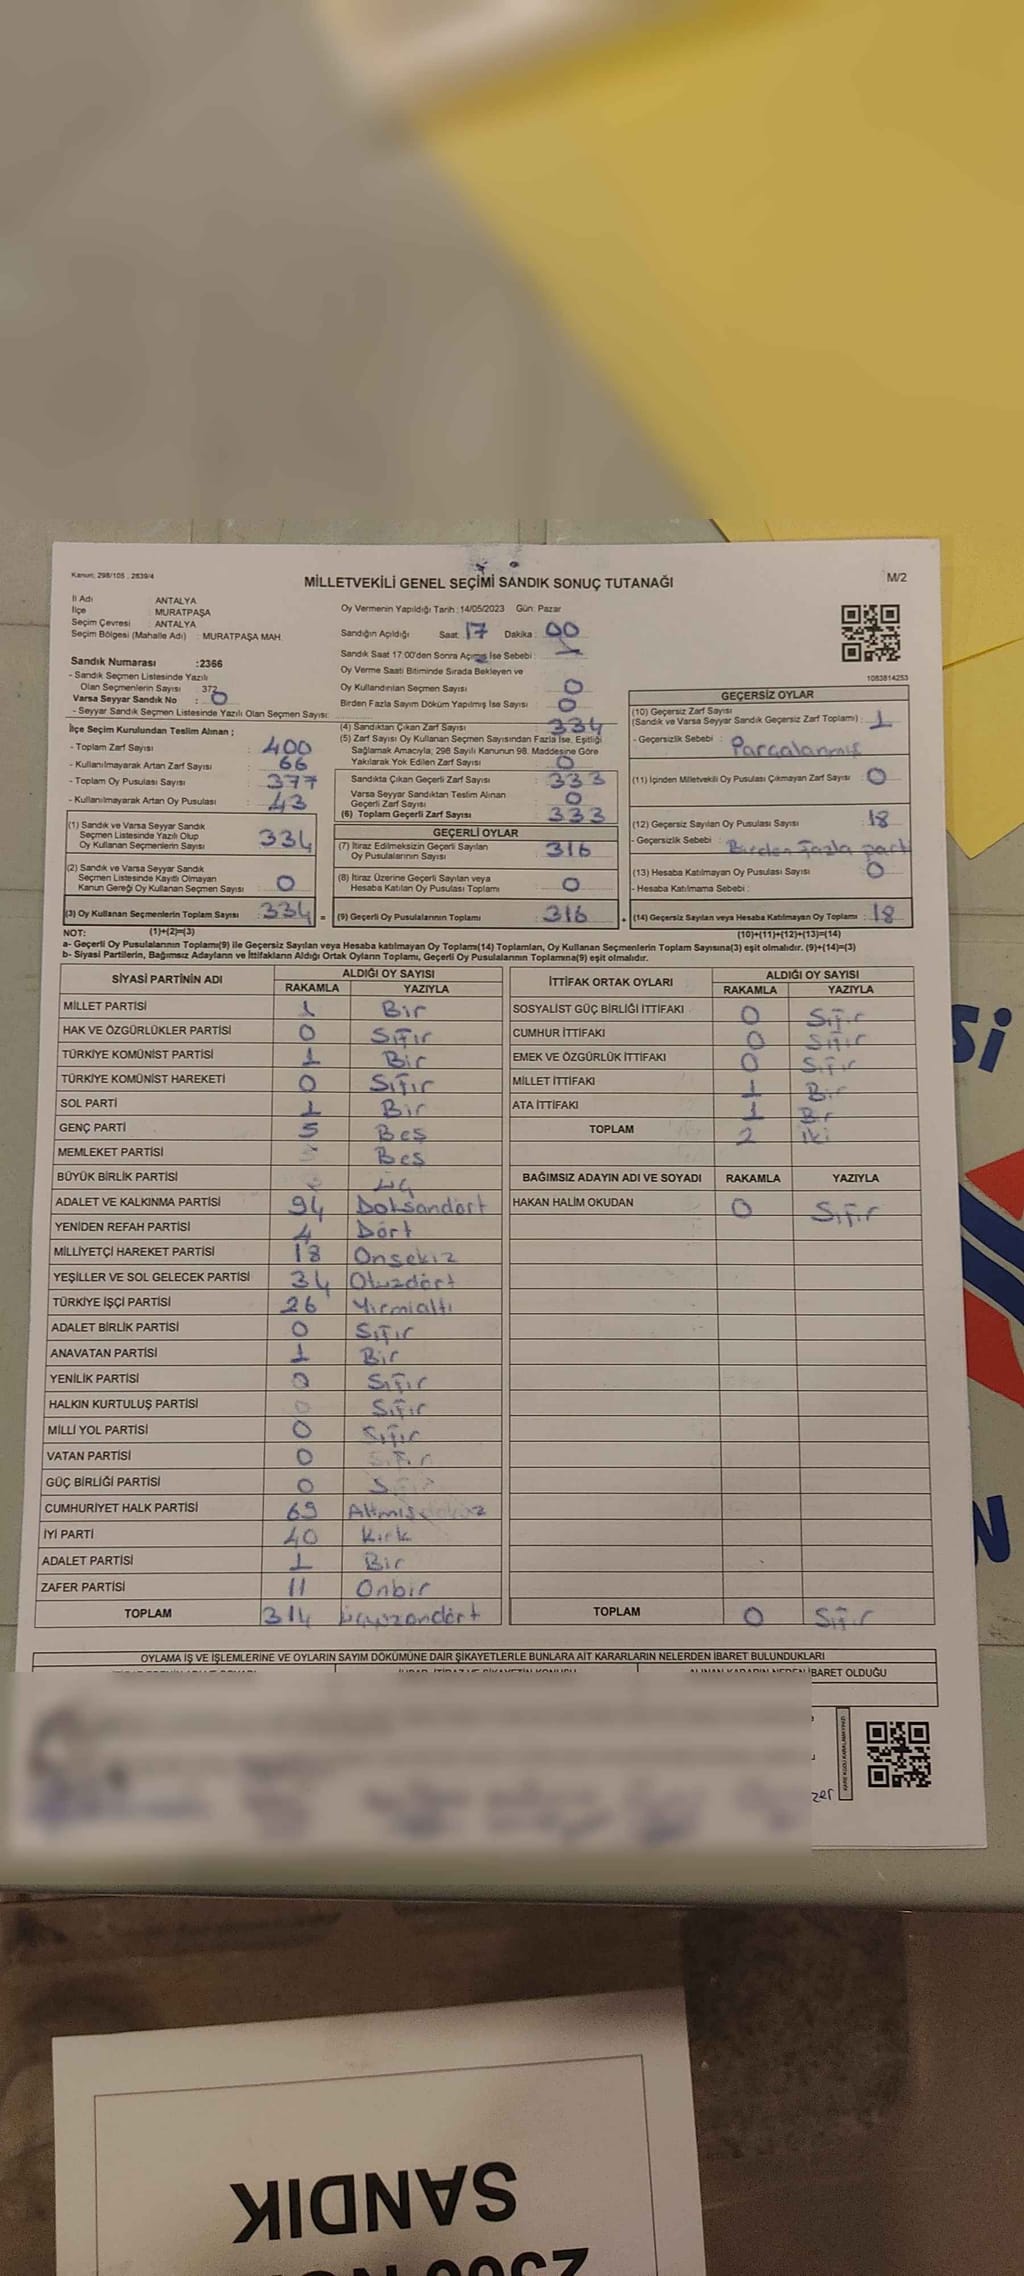 Kanun: 298/105 , 2839/4
MİLLETVEKİLİ GENEL SEÇİMİ SANDIK SONUÇ TUTANAĞI
M/2
İl Adı ANTALYA
İlçe : MURATPAŞA
Seçim Çevresi : ANTALYA
Seçim Bölgesi (Mahalle Adı) : MURATPAŞA MAH.
Oy Vermenin Yapıldığı Tarih : 14/05/2023 Gün: Pazar
Sandığın Açıldığı Saat: 17 Dakika : 00
Sandık Saat 17:00'den Sonra Açılmış İse Sebebi :
Oy Verme Saati Bitiminde Sırada Bekleyen ve
Oy Kullandırılan Seçmen Sayısı : 0
Birden Fazla Sayım Döküm Yapılmış İse Sayısı : 0
1083814253
Sandık Numarası :2366
- Sandık Seçmen Listesinde Yazılı
Olan Seçmenlerin Sayısı : 372
Varsa Seyyar Sandık No : 0
- Seyyar Sandık Seçmen Listesinde Yazılı Olan Seçmen Sayısı:
İlçe Seçim Kurulundan Teslim Alınan ;
- Toplam Zarf Sayısı : 400
- Kullanılmayarak Artan Zarf Sayısı : 66
- Toplam Oy Pusulası Sayısı : 377
- Kullanılmayarak Artan Oy Pusulası : 43
(1) Sandık ve Varsa Seyyar Sandık
Seçmen Listesinde Yazılı Olup
Oy Kullanan Seçmenlerin Sayısı : 334
(2) Sandık ve Varsa Seyyar Sandık
Seçmen Listesinde Kayıtlı Olmayan
Kanun Gereği Oy Kullanan Seçmen Sayısı : 0
(3) Oy Kullanan Seçmenlerin Toplam Sayısı : 334 =
(4) Sandıktan Çıkan Zarf Sayısı : 334
(5) Zarf Sayısı Oy Kullanan Seçmen Sayısından Fazla İse, Eşitliği
Sağlamak Amacıyla, 298 Sayılı Kanunun 98. Maddesine Göre
Yakılarak Yok Edilen Zarf Sayısı : 0
Sandıkta Çıkan Geçerli Zarf Sayısı : 333
Varsa Seyyar Sandıktan Teslim Alınan
Geçerli Zarf Sayısı : 0
(6) Toplam Geçerli Zarf Sayısı : 333
GEÇERLİ OYLAR
(7) İtiraz Edilmeksizin Geçerli Sayılan
Oy Pusulalarının Sayısı : 316
(8) İtiraz Üzerine Geçerli Sayılan veya
Hesaba Katılan Oy Pusulası Toplamı : 0
(9) Geçerli Oy Pusulalarının Toplamı : 316 +
GEÇERSİZ OYLAR
(10) Geçersiz Zarf Sayısı
(Sandık ve Varsa Seyyar Sandık Geçersiz Zarf Toplamı) : 1
- Geçersizlik Sebebi : Parçalanmış
(11) İçinden Milletvekili Oy Pusulası Çıkmayan Zarf Sayısı : 0
(12) Geçersiz Sayılan Oy Pusulası Sayısı : 18
- Geçersizlik Sebebi : Birden fazla parti
(13) Hesaba Katılmayan Oy Pusulası Sayısı : 0
- Hesaba Katılmama Sebebi :
(14) Geçersiz Sayılan veya Hesaba Katılmayan Oy Toplamı : 18
NOT: (1)+(2)=(3) (10)+(11)+(12)+(13)=(14)
a- Geçerli Oy Pusulalarının Toplamı(9) ile Geçersiz Sayılan veya Hesaba katılmayan Oy Toplamı(14) Toplamları, Oy Kullanan Seçmenlerin Toplam Sayısına(3) eşit olmalıdır. (9)+(14)=(3)
b- Siyasi Partilerin, Bağımsız Adayların ve İttifakların Aldığı Ortak Oyların Toplamı, Geçerli Oy Pusulalarının Toplamına(9) eşit olmalıdır.
SİYASİ PARTİNİN ADI ALDIĞI OY SAYISI
RAKAMLA YAZIYLA
MİLLET PARTİSİ 1 Bir
HAK VE ÖZGÜRLÜKLER PARTİSİ 0 Sıfır
TÜRKİYE KOMÜNİST PARTİSİ 1 Bir
TÜRKİYE KOMÜNİST HAREKETİ 0 Sıfır
SOL PARTİ 1 Bir
GENÇ PARTİ 5 Beş
MEMLEKET PARTİSİ 5 Beş
BÜYÜK BİRLİK PARTİSİ Üç
ADALET VE KALKINMA PARTİSİ 94 Doksandört
YENİDEN REFAH PARTİSİ 4 Dört
MİLLİYETÇİ HAREKET PARTİSİ 18 Onsekiz
YEŞİLLER VE SOL GELECEK PARTİSİ 34 Otuzdört
TÜRKİYE İŞÇİ PARTİSİ 26 Yirmialtı
ADALET BİRLİK PARTİSİ 0 Sıfır
ANAVATAN PARTİSİ 1 Bir
YENİLİK PARTİSİ 0 Sıfır
HALKIN KURTULUŞ PARTİSİ 0 Sıfır
MİLLİ YOL PARTİSİ 0 Sıfır
VATAN PARTİSİ 0 Sıfır
GÜÇ BİRLİĞİ PARTİSİ 0 Sıfır
CUMHURİYET HALK PARTİSİ 69 Altmışdokuz
İYİ PARTİ 40 Kırk
ADALET PARTİSİ 1 Bir
ZAFER PARTİSİ 11 Onbir
TOPLAM 314 üçyüzondört
İTTİFAK ORTAK OYLARI ALDIĞI OY SAYISI
RAKAMLA YAZIYLA
SOSYALİST GÜÇ BİRLİĞİ İTTİFAKI 0 Sıfır
CUMHUR İTTİFAKI 0 Sıfır
EMEK VE ÖZGÜRLÜK İTTİFAKI 0 Sıfır
MİLLET İTTİFAKI 1 Bir
ATA İTTİFAKI 1 Bir
TOPLAM 2 iki
BAĞIMSIZ ADAYIN ADI VE SOYADI RAKAMLA YAZIYLA
HAKAN HALİM OKUDAN 0 Sıfır
TOPLAM 0 Sıfır
OYLAMA İŞ VE İŞLEMLERİNE VE OYLARIN SAYIM DÖKÜMÜNE DAİR ŞİKAYETLERLE BUNLARA AİT KARARLARIN NELERDEN İBARET BULUNDUKLARI
ALINAN KARARIN NEDEN İBARET OLDUĞU
zer
Sİ
N
SANDIK